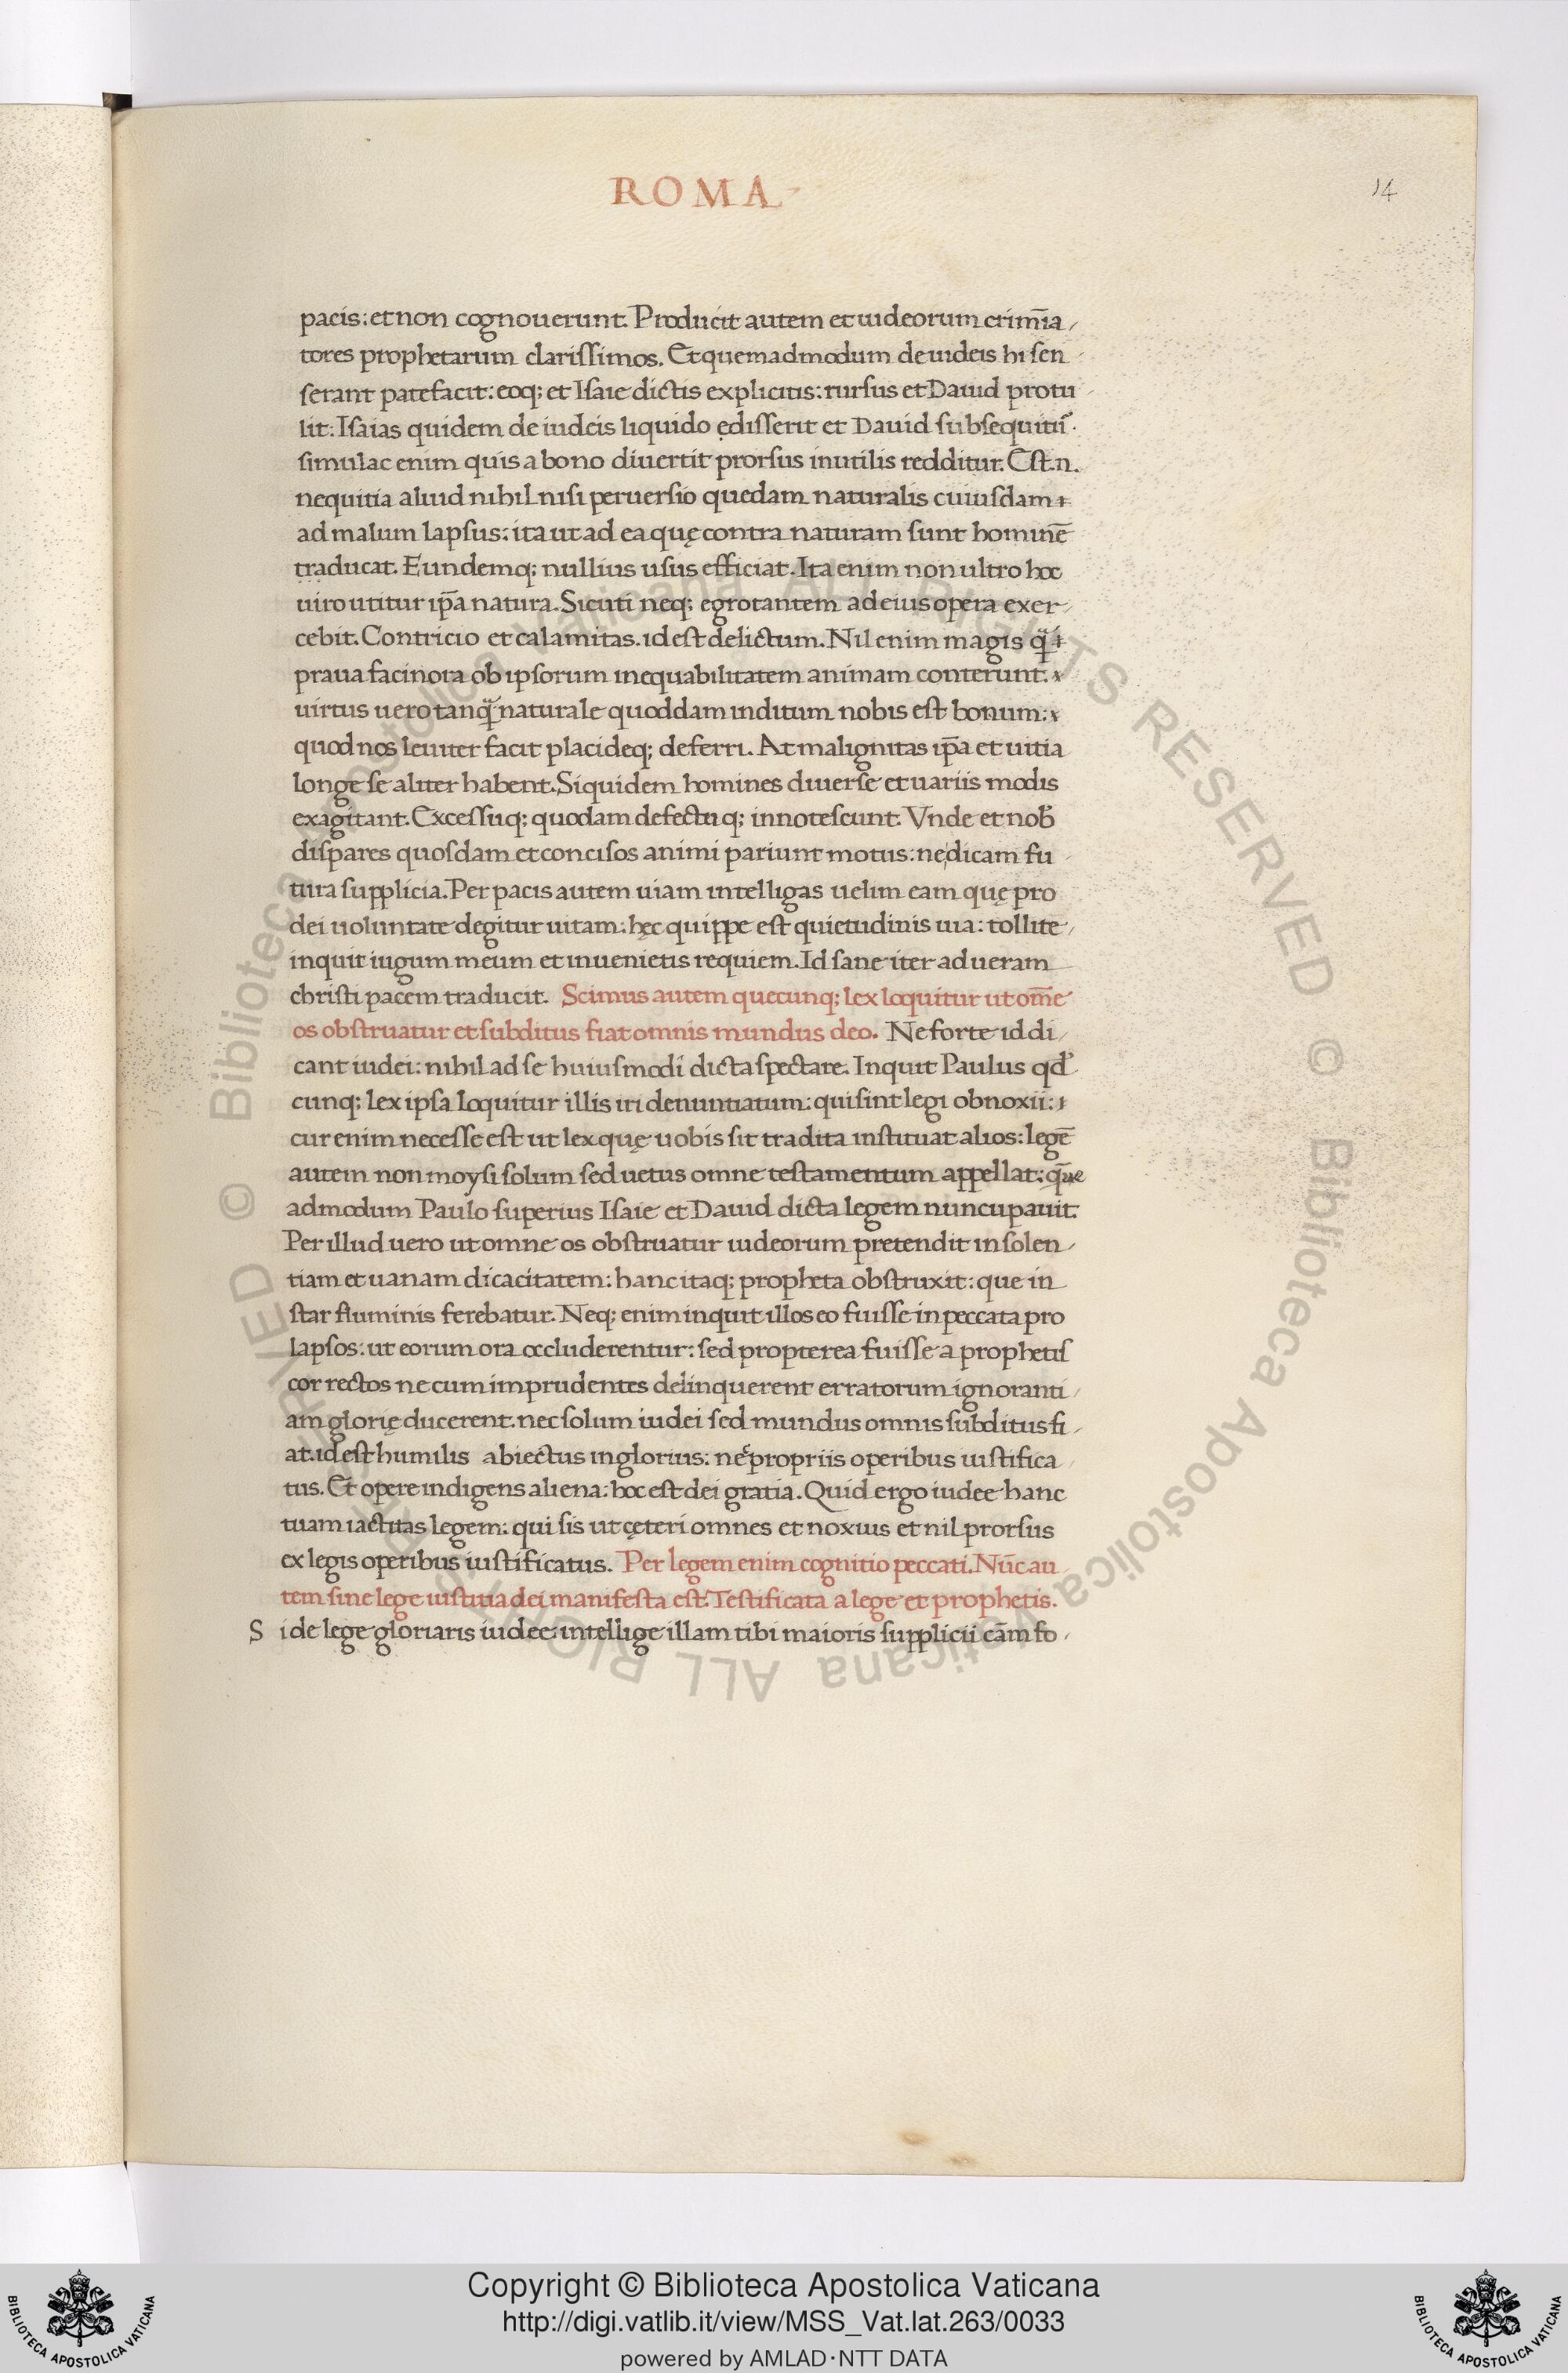 ROMA
14
pacis: et non cognouerunt. Producit autem et iudeorum crimīa
tores prophetarum clarissimos. Et quemadmodum de iudeis hi sen
serant patefacit: eoq; et Isaie dictis explicitis: rursus et Dauid protu
lit: Isaias quidem de iudeis liquido ędisserit et Dauid subsequitur̃.
simulac enim quis a bono diuertit prorsus inutilis redditur. Est.n.
nequitia aliud nihil nisi peruersio quedam naturalis cuiusdam
ad malum lapsus: ita ut ad ea quę contra naturam sunt hominē
traducat. Eundemq; nullius usus efficiat. Ita enim non ultro hoc
uiro utitur ip̄a natura. Sicuti neq; egrotantem ad eius opera exer
cebit. Contricio et calamitas. id est delictum. Nil enim magis q̃
praua facinora ob ipsorum inequabilitatem animam conterunt.
uirtus uero tanq̃ naturale quoddam inditum nobis est bonum:
quod nos leuiter facit placideq; deferri. At malignitas ip̄a et uitia
longe se aliter habent. Siquidem homines diuerse et uariis modis
exagitant. Excessuq; quodam defectuq; innotescunt. Vnde et nob̃
dispares quosdam et concisos animi pariunt motus: ne dicam fu
tura supplicia. Per pacis autem uiam intelligas uelim eam quę pro
dei uoluntate degitur uitam: hęc quippe est quietudinis uia: tollite
inquit iugum meum et inuenietis requiem. Id sane iter ad ueram
christi pacem traducit. Scimus autem quecunq; lex loquitur ut om̄e
os obstruatur et subditus fiat omnis mundus deo. Ne forte id di
cant iudei: nihil ad se huiusmodi dicta spectare. Inquit Paulus qd̓
cunq; lex ipsa loquitur illis iri denuntiatum: qui sint legi obnoxii:
cur enim necesse est ut lex quę uobis sit tradita instituat alios: legē
autem non moysi solum sed uetus omne testamentum appellat: q̄ue
admodum Paulo superius Isaie et Dauid dicta legem nuncupauit.
Per illud uero ut omne os obstruatur iudeorum pretendit insolen
tiam et uanam dicacitatem: hanc itaq; propheta obstruxit: que in
star fluminis ferebatur. Neq; enim inquit illos eo fuisse in peccata pro
lapsos: ut eorum ora occluderentur: sed propterea fuisse a prophetis
correctos ne cum imprudentes delinquerent erratorum ignoranti
am glorię ducerent. nec solum iudei sed mundus omnis subditus fi
at. id est humilis abiectus inglorius: nec propriis operibus iustifica
tus. Et opere indigens aliena: hoc est dei gratia. Quid ergo iudee hanc
tuam iactitas legem: qui sis ut cęteri omnes et noxius et nil prorsus
ex legis operibus iustificatus. Per legem enim cognitio peccati. Nūc au
tem sine lege iustitia dei manifesta est. Testificata a lege et prophetis.
S i de lege gloriaris iudee: intellige illam tibi maioris supplicii cām fo
Copyright © Biblioteca Apostolica Vaticana
http://digi.vatlib.it/view/MSS_Vat.lat.263/0033
powered by AMLAD·NTT DATA